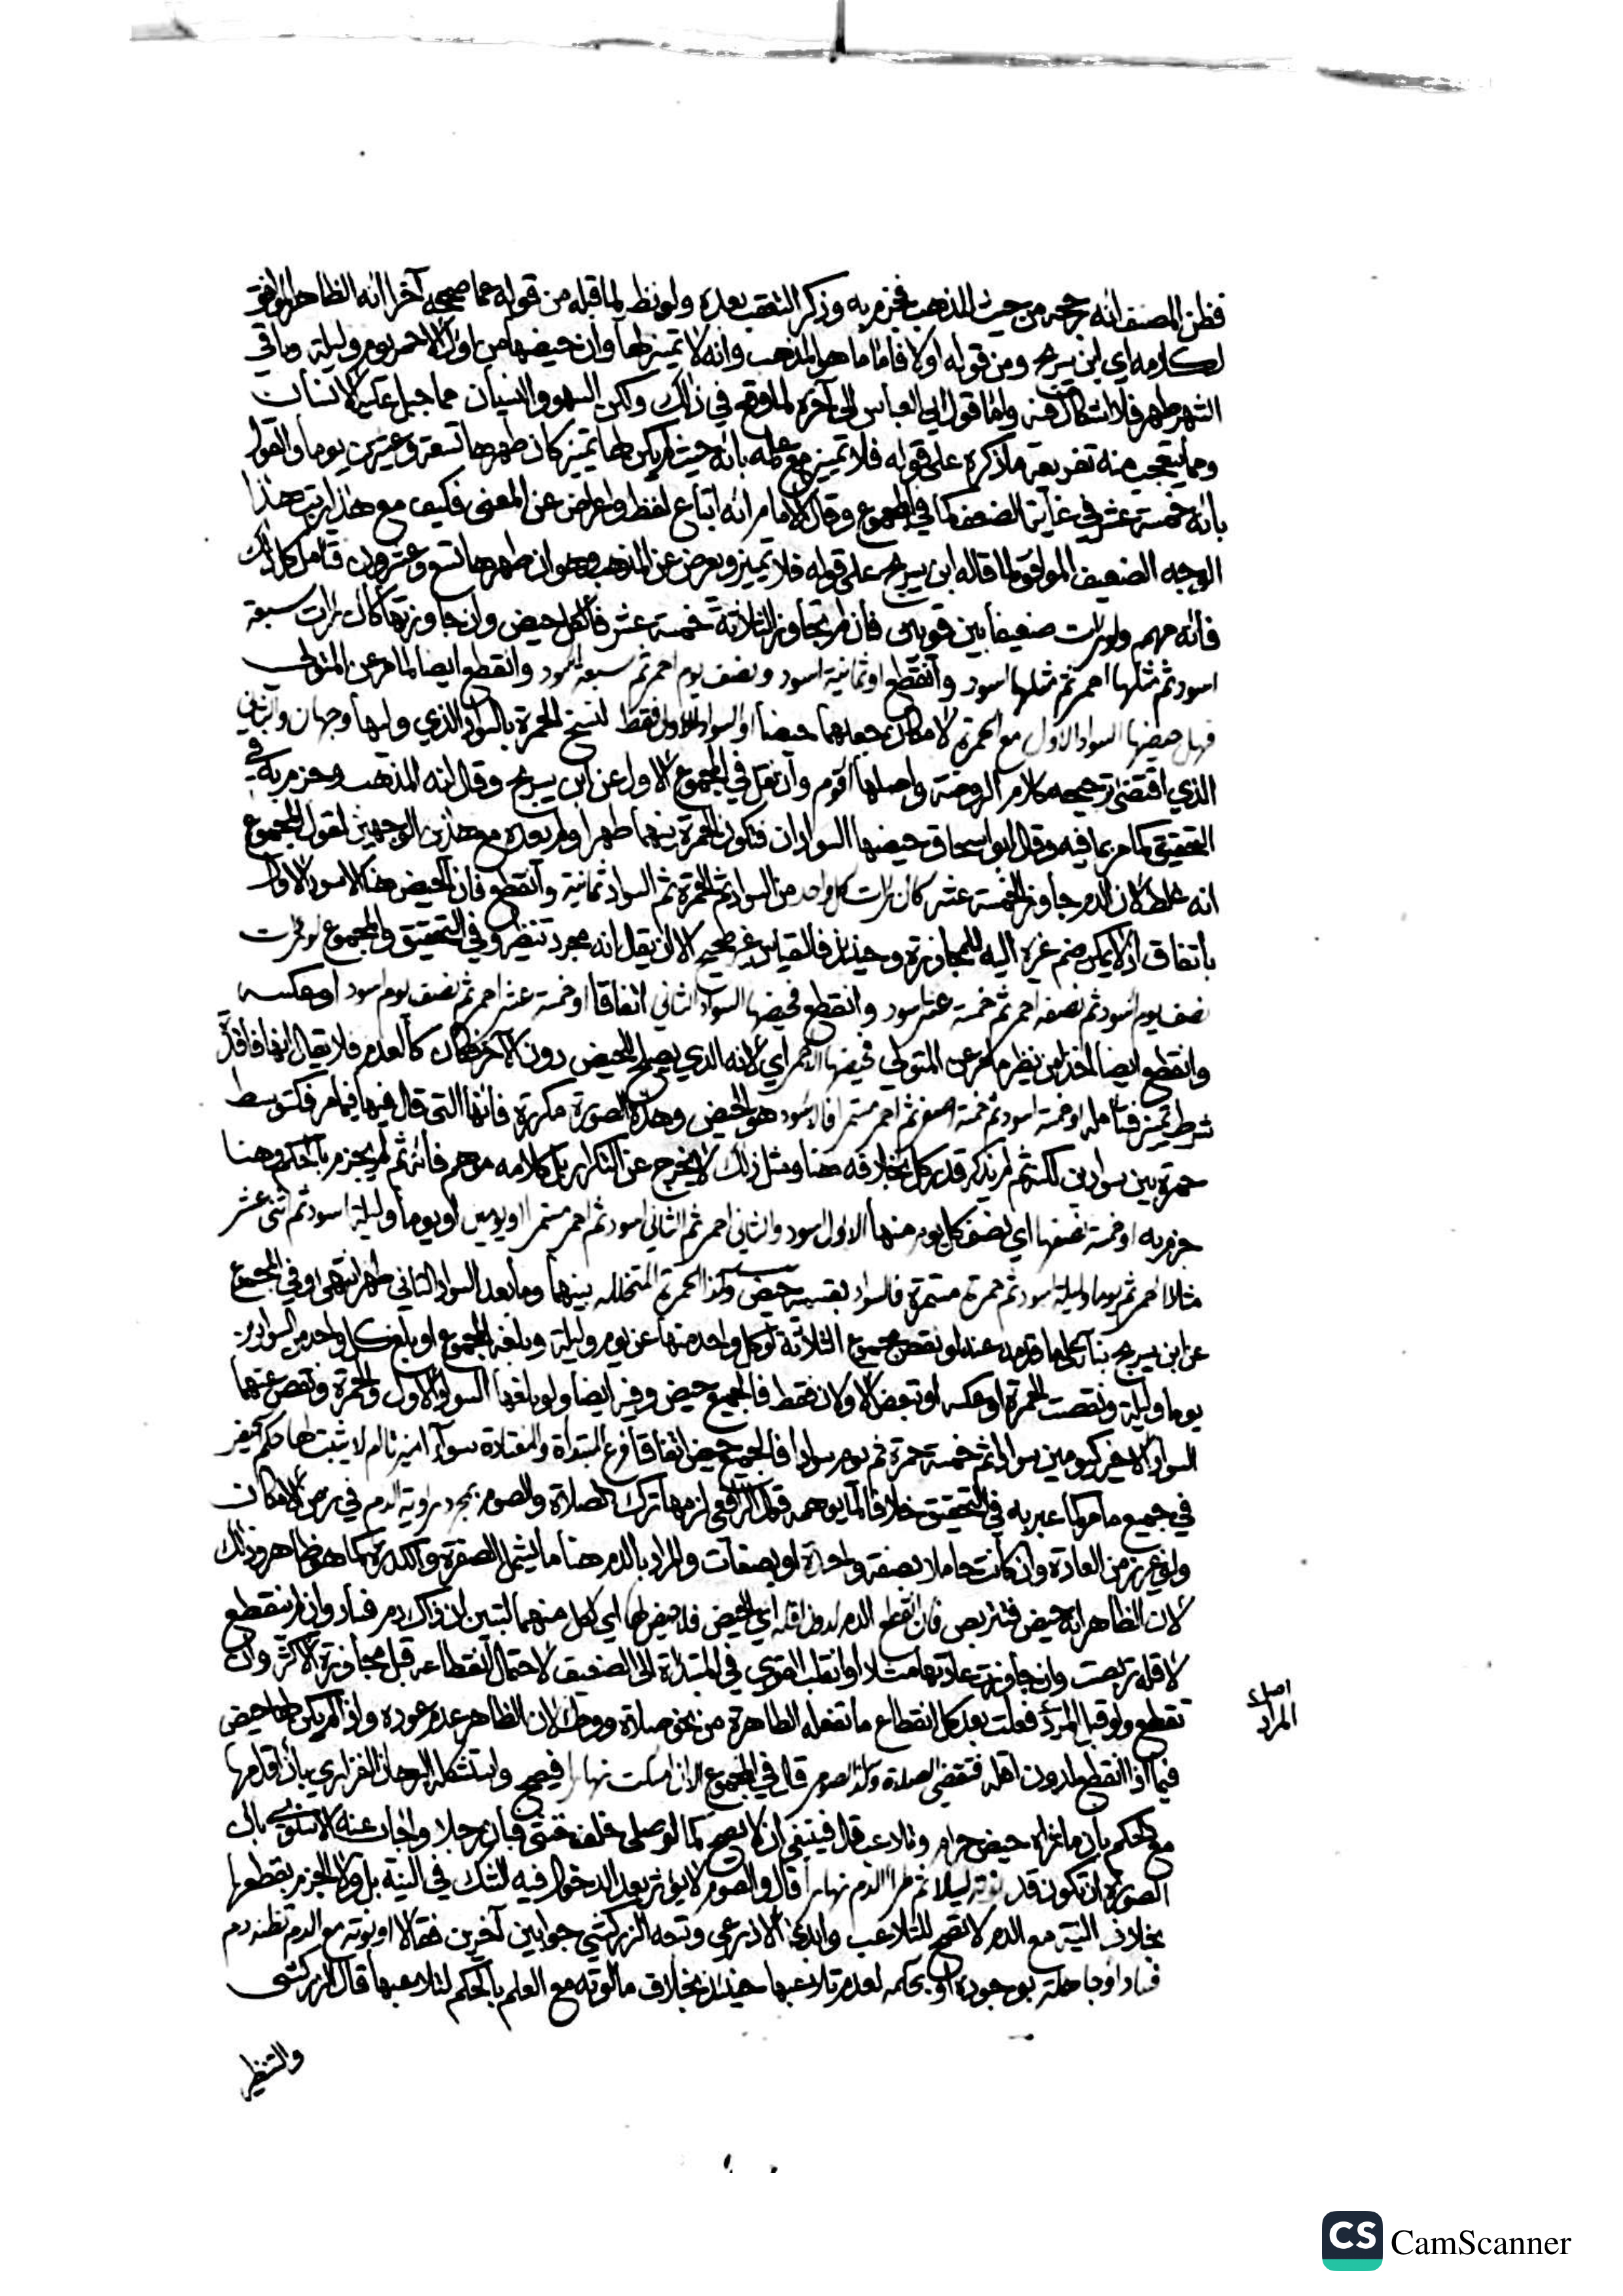 فظن المصنف انه رجحه من حيث المذهب فجزم به وذكر التعقب بعده ولو نظر لما قبله من قوله عما صححه آخرا انه الظاهر الموافق
لكلامه اي ابن سريج ومن قوله اولا فاما ما هو المذهب وانه لا تمييز لها وان حيضها من اول الاحمر يوم وليلة وباقي
الشهر طهر فلا اشكال فيه واما قول ابي العباس الى آخره لما وقع في ذلك ولكن السهو والنسيان مما جبل عليه الانسان
ومما يتعجب منه تفريعه ما ذكره على قوله فلا تمييز مع علمه بانه حيث لم يكن لها تمييز كان طهرها تسعة وعشرين يوما والقول
بانه خمسة عشر في غاية الضعف كما في المجموع وقال الامام انه اتباع لفظ واعراض عن المعنى فكيف مع هذا يرتب هذا
الوجه الضعيف الموافق لما قاله ابن سريج على قوله فلا تمييز ويعرض عن المذهب وهو ان طهرها تسع وعشرون فتامل كل ذلك
فانه مهم ولو رات ضعيفا بين قويين فان لم تجاوز الثلاثة خمسة عشر فالكل حيض وان جاوزتها كان رات سبعة
اسود ثم مثلها احمر ثم مثلها اسود وانقطع او ثمانية اسود ونصف يوم احمر ثم سبعة اسود وانقطع ايضا لما مر عن المتولي
فهل حيضها السواد الاول مع الحمرة لامكان جعلهما حيضا او السواد الاول فقط لنسخ الحمرة بالسواد الذي وليها وجهان والثاني
الذي اقتضى ترجيحه كلام الروضة واصلها اقوم وان نقل في المجموع الاول عن ابن سريج وقال انه المذهب وجزم به في
التحقيق كما مر بما فيه وقال ابو اسحاق حيضها السوادان فتكون الحمرة بينهما طهرا ولم يعده مع هذين الوجهين لقول المجموع
انه غلط لان الدم جاوز الخمسة عشر كان رات كل واحد من السواد ثم الحمرة ثم السواد ثمانية وانقطع فان الحيض هنا الاسود الاول
باتفاق اذ لا يمكن ضم غيره اليه للمجاوزة وحينئذ فالقياس غير صحيح الا ان يقال انه مجرد تنظير وفي التحقيق والمجموع لو رات
نصف يوم اسود ثم نصفه احمر ثم خمسة عشر اسود وانقطع فحيضها السواد الثاني اتفاقا او خمسة عشر احمر ثم نصف يوم اسود او عكسه
وانقطع ايضا اخذا من نظيره ما مر عن المتولي فحيضها الاحمر اي لانه الذي يصلح للحيض دون الآخر فكان كالعدم فلا يقال انها فاقدة
شرط تمييز فتامله او خمسة اسود ثم خمسة اصفر ثم احمر مستمر فالاسود هو الحيض وهذه الصورة مكررة فانها التي قال فيها فيما مر فكتوسط
حمرة بين سوادين لكنه ثم لم يذكر قدر كل بخلافه هنا ومثل ذلك لا يخرج عن التكرار بل كلامه موهم فانه ثم لم يجزم بالحكم وهنا
جزم به او خمسة نصفها اي نصف كل يوم منها الاول اسود والثاني احمر ثم الثاني اسود ثم احمر مستمرا او يومين او يوما وليلة اسود ثم اثنى عشر
مثلا احمر ثم يوما وليلة اسود ثم حمرة مستمرة فالسواد بقسميه حيض وكذا الحمرة المتخللة بينهما وما بعد السواد الثاني طهر انتهى وفي المجموع
عن ابن سريج بناء على ما قدمه عنه لو نقص مجموع الثلاثة او كل واحد منها عن يوم وليلة وبلغه المجموع او بلغ كل واحد من السوادين
يوما وليلة ونقصت الحمرة او عكسه او نقص الاولان فقط فالجميع حيض وفيه ايضا ولو بلغها السواد الاول والحمرة ونقص عنهما
السواد الاخير كيومين سوادا ثم خمسة حمرة ثم يوم سوادا فالجميع حيض اتفاقا فرع المبتداة والمعتادة سواء المميزة ما لم يثبت لها حكم آخر
في جميع ما مر كما عبر به في التحقيق خلافا لما يوهمه قول الرافعي لزمها ترك الصلاة والصوم بمجرد رؤية الدم في زمن الامكان
ولو في غير زمن العادة وان كانت حاملا بصفة واحدة او بصفات والمراد بالدم هنا ما يشمل الصفرة والكدرة كما هو ظاهر وذلك
لان الظاهر انه حيض فتتربص فان انقطع الدم لدون اقله اي الحيض فلا حيض لها اي لكل منهما لتبين ان ذاك دم فساد وان لم ينقطع
لاقله تربصت وان جاوزت عادتها مثلا او انقلب القوي في المبتداة الى الضعيف لاحتمال انقطاعه قبل مجاوزة الاكثر وان
تقطع ولو قبل المرد فعلت بعد كل انقطاع ما تفعله الطاهرة من نحو صلاة ووطئ لان الظاهر عدم عوده واذا لم يكن لها حيض
فيما اذا انقطع لدون اقله فتقضي الصلاة وكذا الصوم قال في المجموع الا ان امسكت نهارا فيصح واستشكله البرهان الفزاري بان اقدامها
مع الحكم بان ما تراه حيض حرام وتلاعب قال فينبغي ان لا يصح كما لو صلى خلف خنثى فبان رجلا واجاب عنه الاسنوي بان
الصورة ان تكون قد نوته ليلا ثم طرا الدم نهارا قال والصوم لا يؤثر بعد الدخول فيه الشك في النية بل ولا الجزم بقطعها
بخلاف النية مع الدم لا تصح للتلاعب وابدى الاذرعي وتبعه الزركشي جوابين آخرين فقالا او نوته مع الدم تظنه دم
فساد او جاهلة بوجوده او بحكمه لعدم تلاعبها حينئذ بخلاف ما لو نوته مع العلم بالحكم لتلاعبها قال الزركشي
والتنظير
اصل
المراد
CS CamScanner